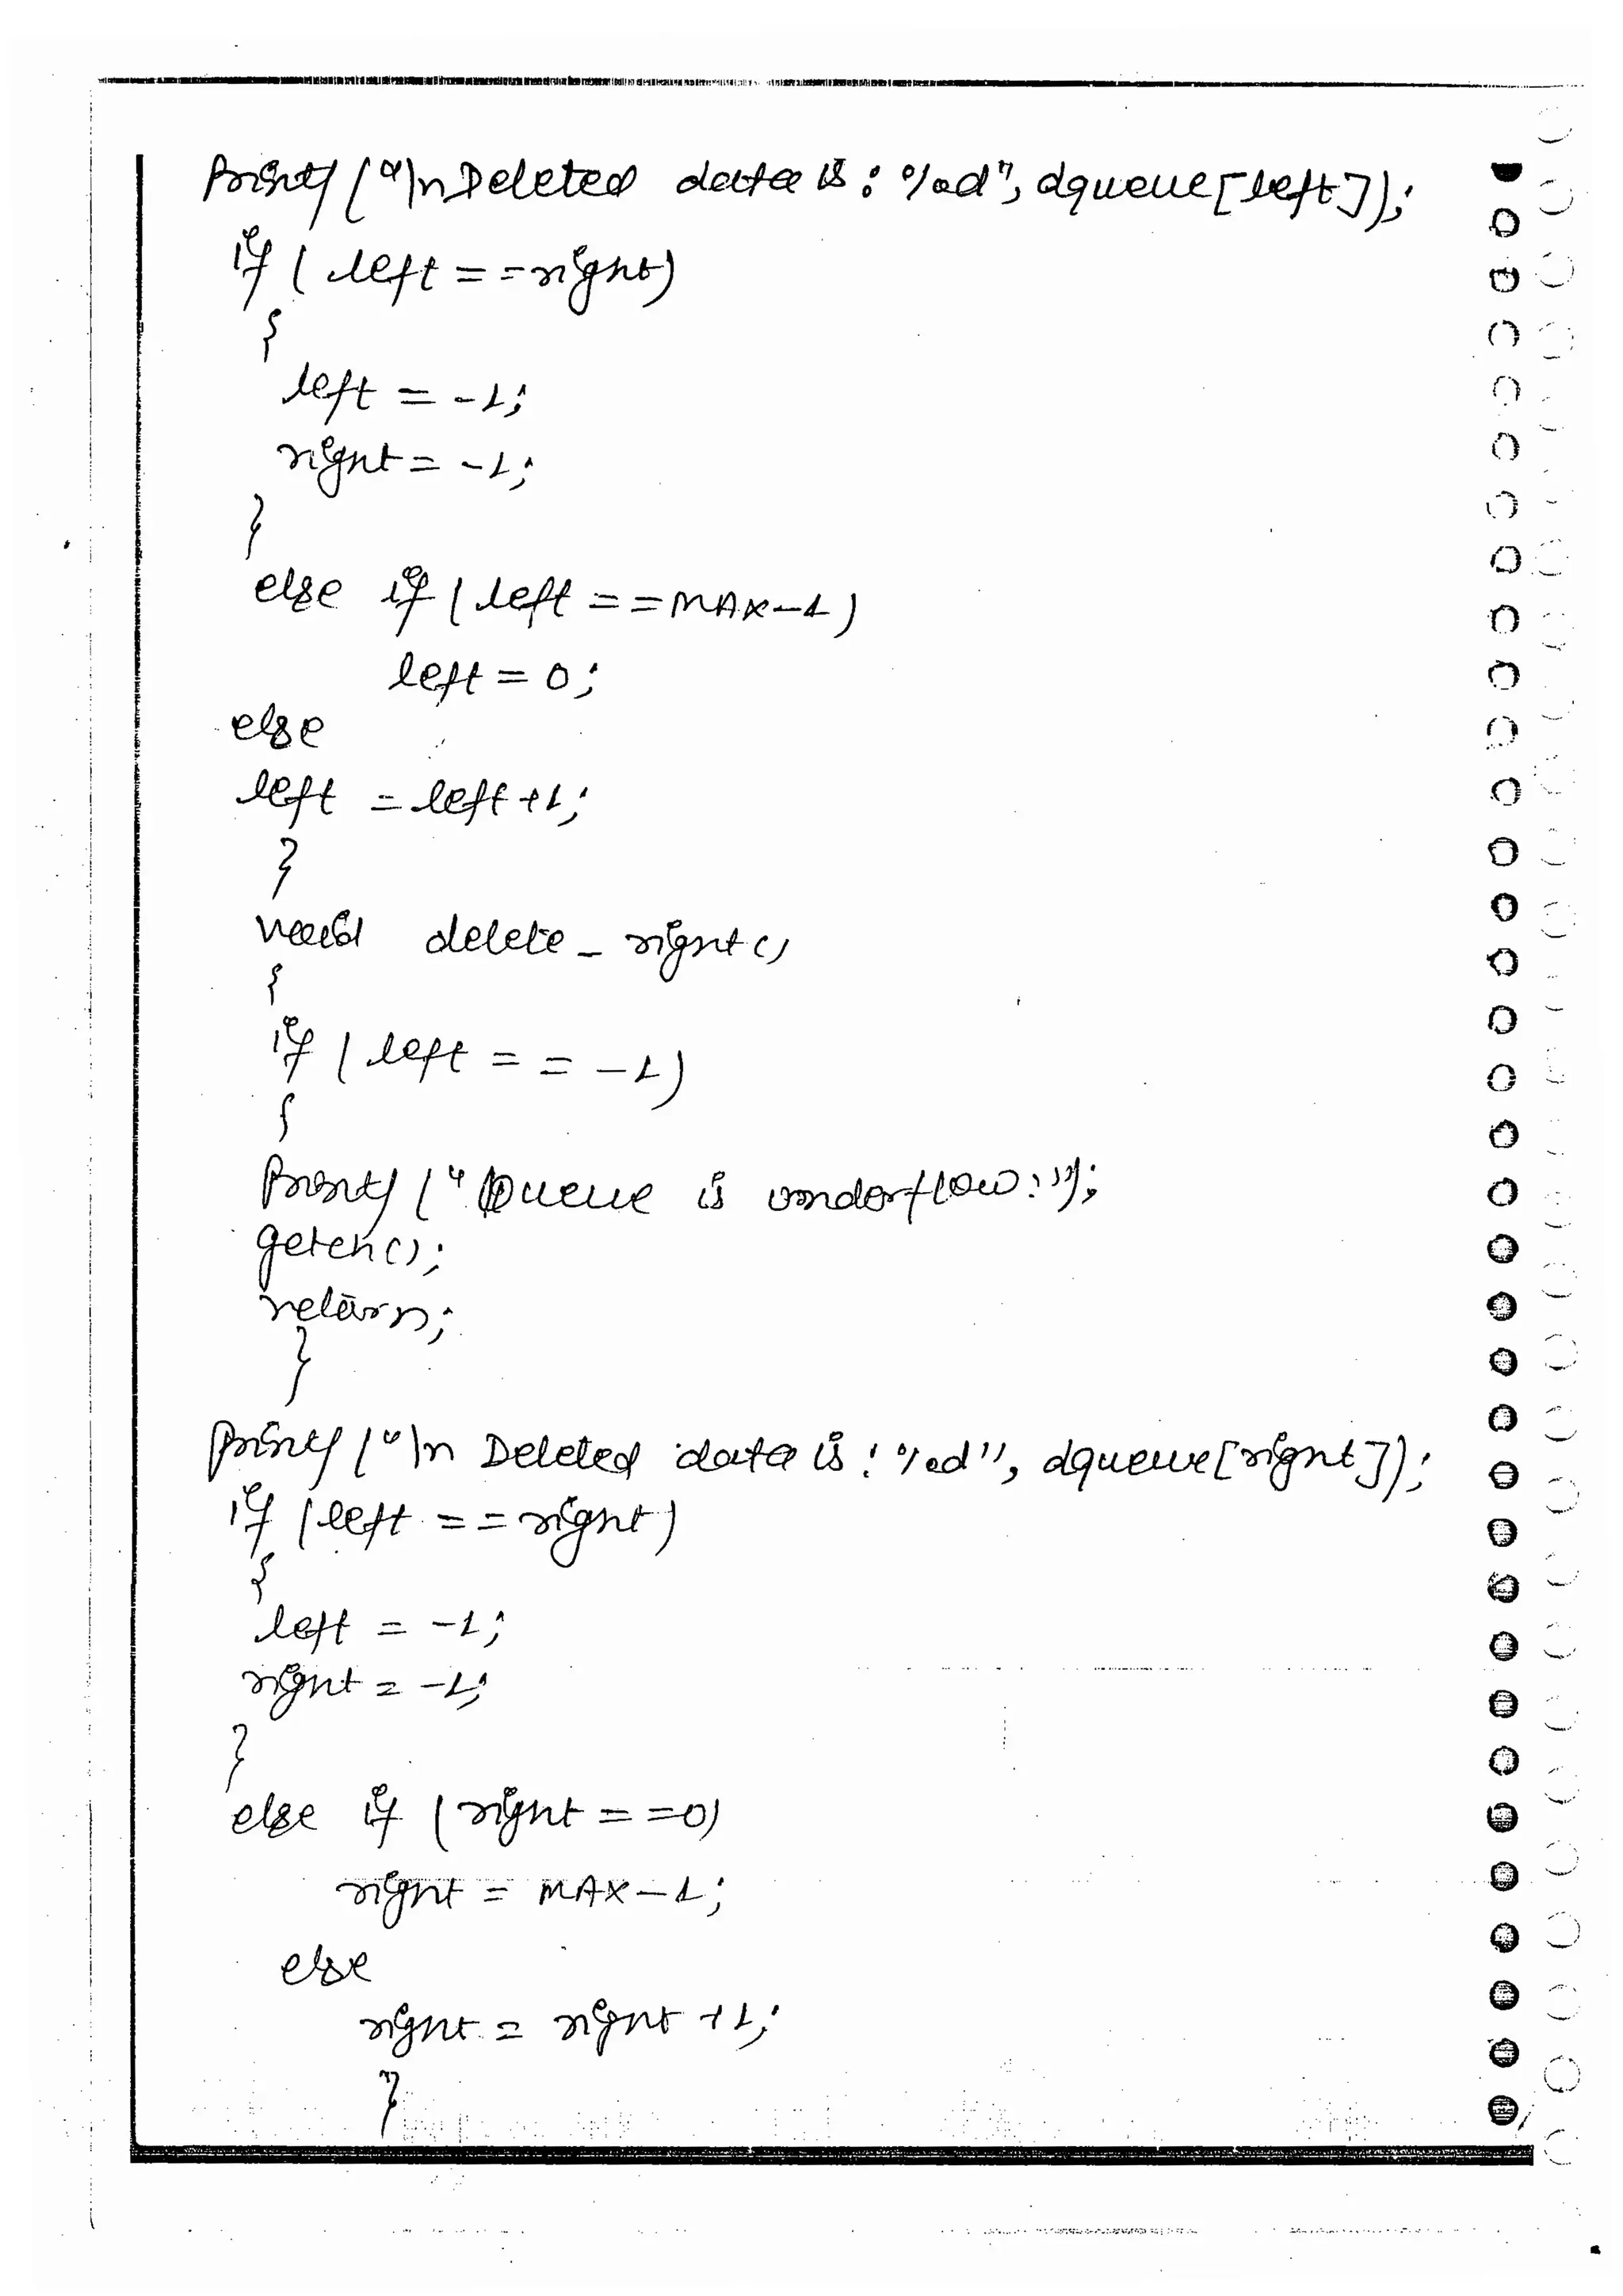 printf("\nDeleted data is : %d", dqueue[left]);
if (left == right)
{
left = -1;
right = -1;
}
else if (left == MAX-1)
left = 0;
else
left = left+1;
}
void delete_right()
{
if (left == -1)
{
printf("Queue is underflow:");
getch();
return;
}
printf("\n Deleted data is : %d", dqueue[right]);
if (left == right)
{
left = -1;
right = -1;
}
else if (right == 0)
right = MAX-1;
else
right = right +1;
}